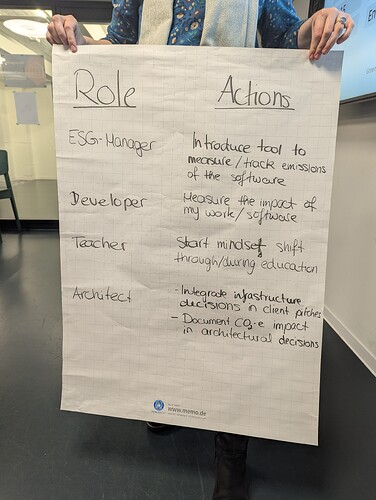 Role
Actions
ESG-Manager
Introduce tool to
measure/track emissions
of the software
Developer
Measure the impact of
my work/software
Teacher
Start mindset shift
through/during education
Architect
- Integrate infrastructure
decisions in client pitches
- Document CO2-e impact
in architectural decisions
www.memo.de